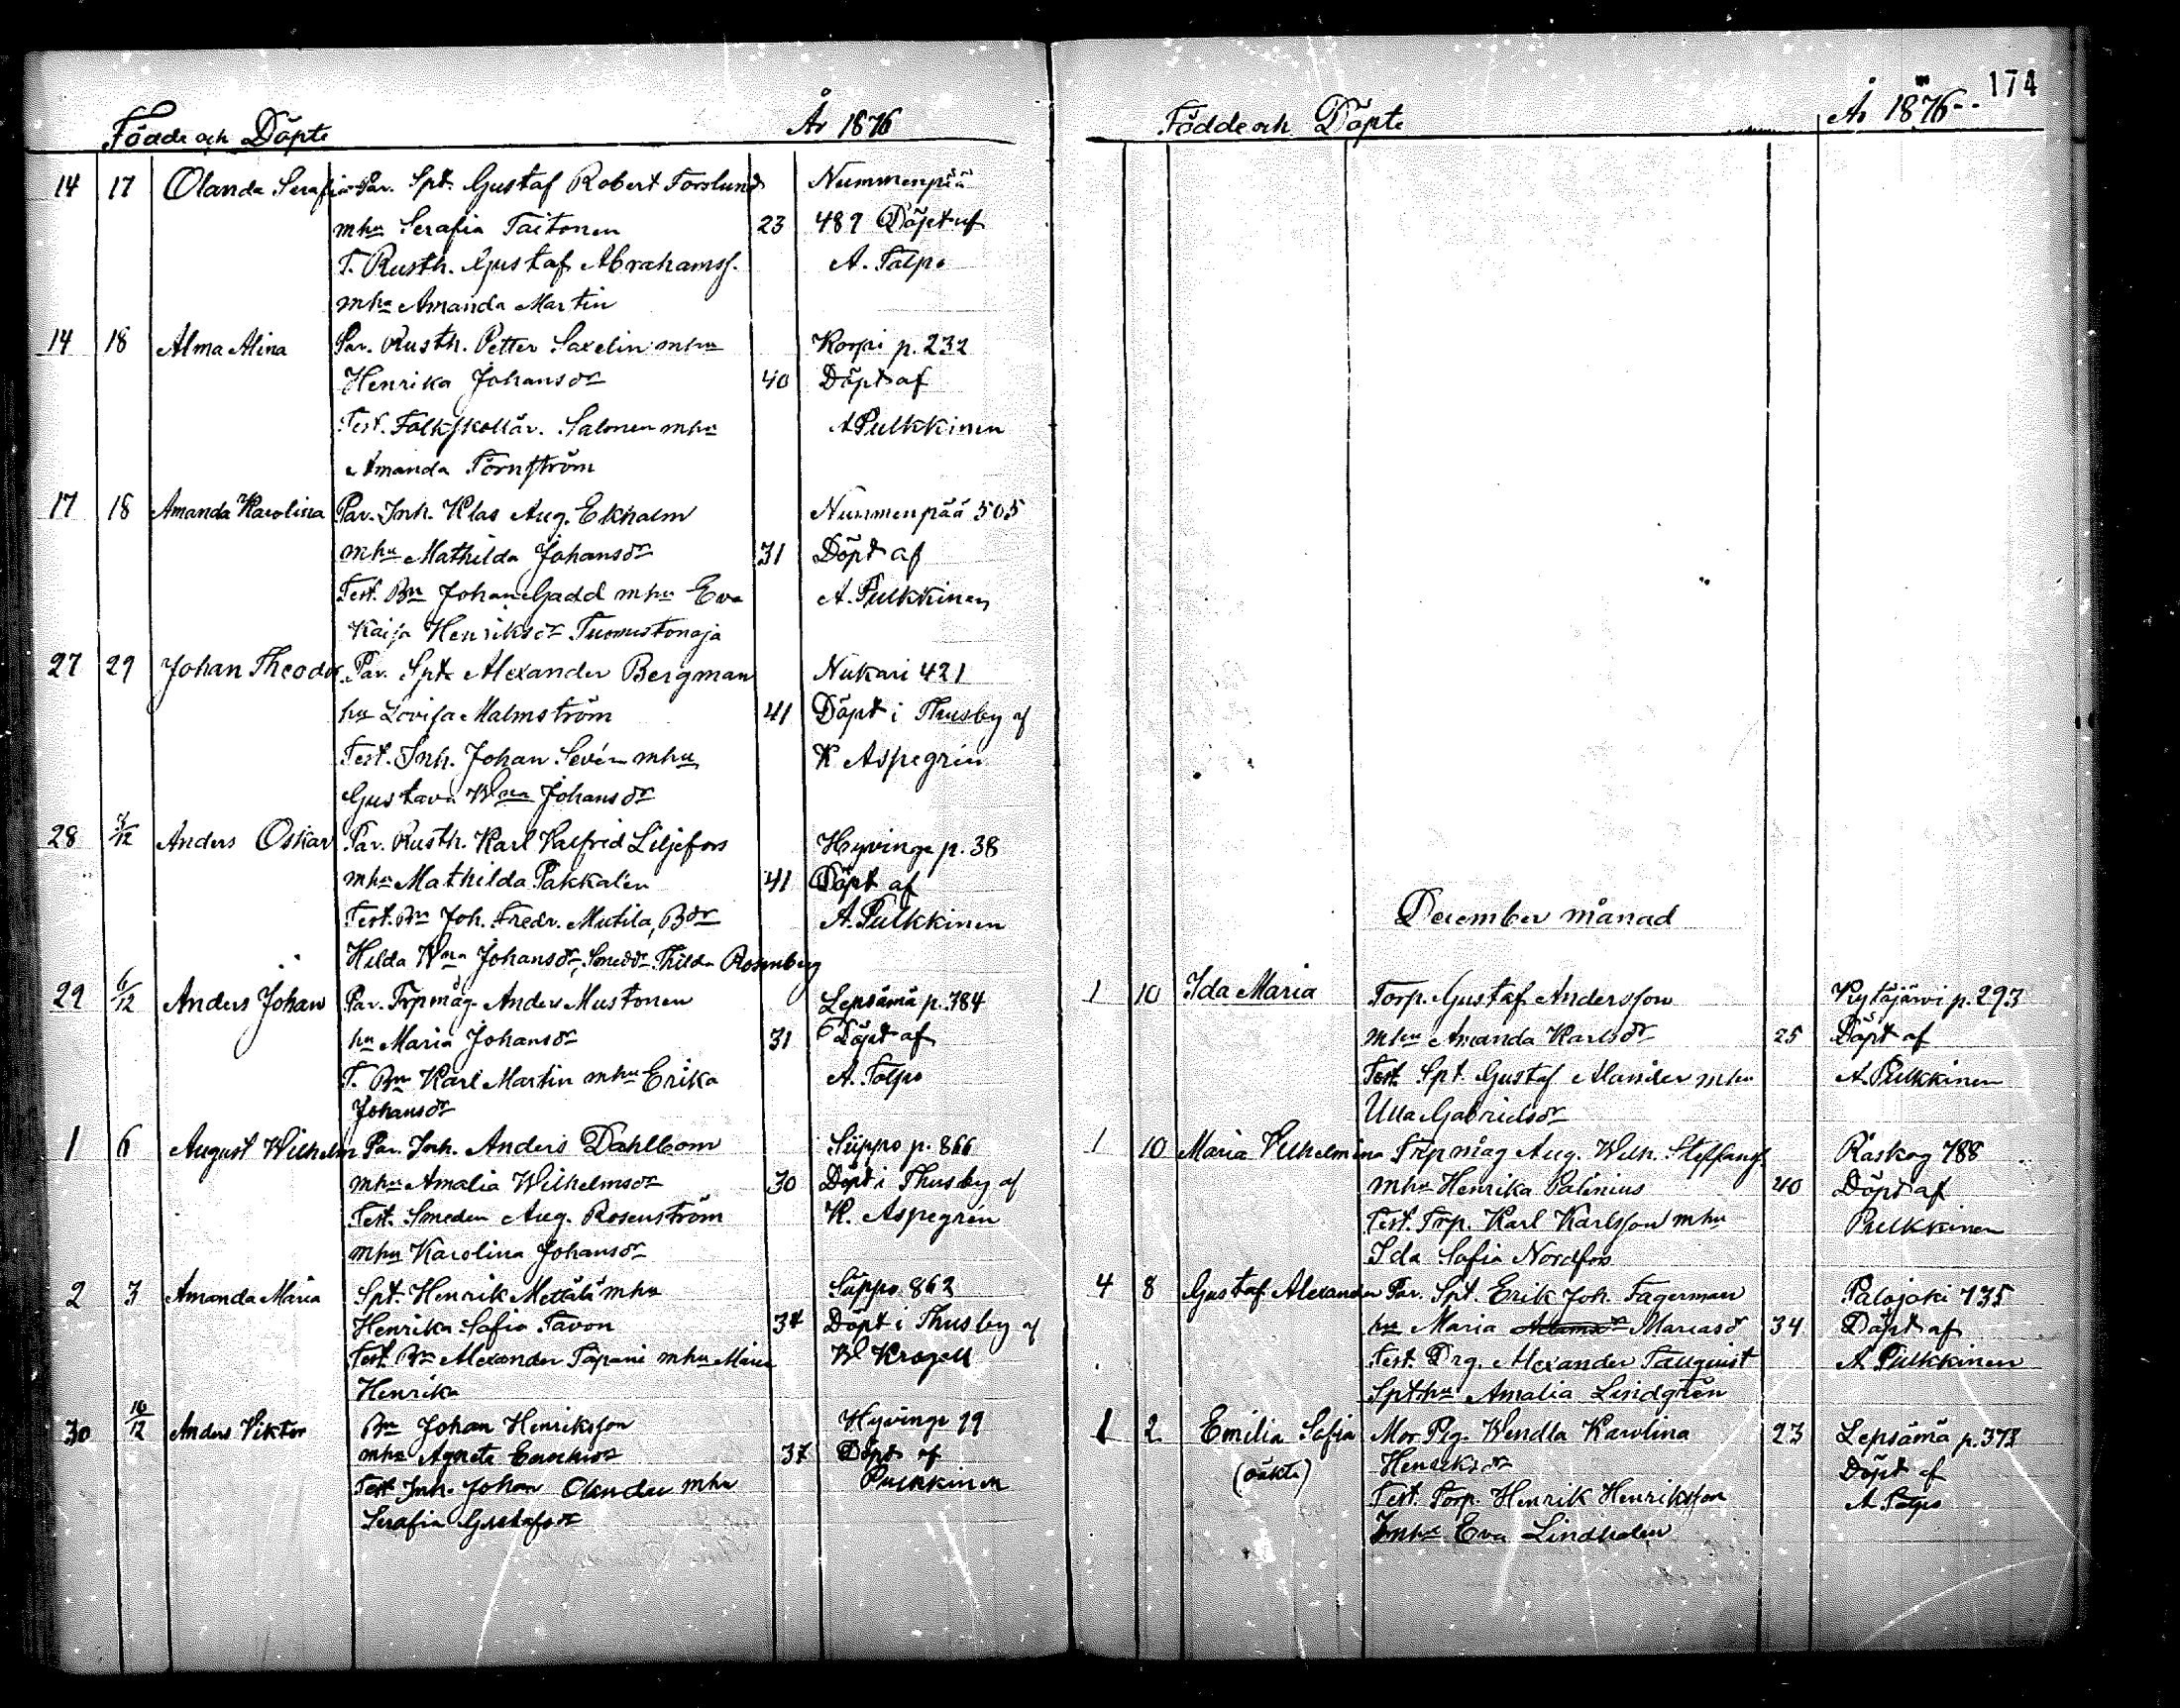 Födde och Döpte År 1876
14 17 Olanda Serafia Par. Spt. Gustaf Robert Forslund Nummenpää
mhu Serafia Taitonen 23 489 Döpt af
T. Rusth. Gustaf Abrahamss. A. Talpo
mhu Amanda Martin
14 18 Alma Alina Par. Rusth. Petter Saxelin mhu Korpi p. 232
Henrika Johansdr 40 Döpt af
Test. Folkskollär. Salonen mhu A Pulkkinen
Amanda Törnström
17 18 Amanda Karolina Par. Inh. Klas Aug. Ekholm Nummenpää 505
mhu Mathilda Johansdr 31 Döpt af
Test. Bn Johan Gadd mhu Eva A. Pulkkinen
Kaisa Henriksdr Tuomistonoja
27 29 Johan Theodor Par. Spt. Alexander Bergman Nukari 421
hu Lovisa Malmström 41 Döpt i Thusby af
Test. Inh. Johan Sevén mhu K Aspegrén
Gustava Wna Johansdr
28 3/12 Anders Oskar Par. Rusth. Karl Valfrid Liljefors Hyvinge p. 38
mhu Mathilda Pakkalén 41 Döpt af
Test. Bn Joh. Fredr. Mutila, Bdr A. Pulkkinen
Hilda Wna Johansdr, Smeddr Thilda Rosenberg
29 6/12 Anders Johan Par. Trpmåg Anders Mustonen Lepsämä p. 384
hu Maria Johansdr 31 Döpt af
T. Bn Karl Martin mhu Erika A. Talpo
Johansdr
1 6 August Wilhelm Par. Inh. Anders Dahlbom Siippo p. 866
mhu Amalia Wilhelmsdr 30 Döpt i Thusby af
Test. Smeden Aug. Rosenström K. Aspegrén
mhu Karolina Johansdr
2 3 Amanda Maria Spt. Henrik Mettälä mhu Siippo 862
Henrika Sofia Tavon Döpt i Thusby af
Test. Bn Alexander Tapani mhu Maria W Krogell
Henrika
30 10/12 Anders Viktor Bn Johan Henriksson Hyvinge 19
mhu Agneta Döpt af
Test Inh. Johan Olander mhu Pulkkinen
Serafia Gustafsdr
174
Födde och Döpte År 1876
December månad
1 10 Ida Maria Torp. Gustaf Andersson Kytäjärvi p. 293
mhu Amanda Karlsdr 25 Döpt af
Test. Spt. Gustaf Alander mhu A. Pulkkinen
Ulla Gabrielsdr
1 10 Maria Vilhelmina Trpmåg Aug. Wilh. Steffanss. Raskog 788
mhu Henrika Palinius 40 Döpt af
Test. Trp. Karl Karlsson mhu Pulkkinen
Ida Sofia Nordfors
4 8 Gustaf Alexander Par. Spt. Erik Joh. Fagerman Palojoki 735
hu Maria Adamsdr Mariasd 34 Döpt af
Test. Drg. Alexander Tallqvist A Pulkkinen
Spthu Amalia Lindgrén
1 2 Emilia Sofia Mor Pig. Wendla Karolina 23 Lepsämä p. 373
(oäkta) Henriksdr Döpt af
Test. Torp. Henrik Henriksson A Talpo
mhu Eva Lindholm